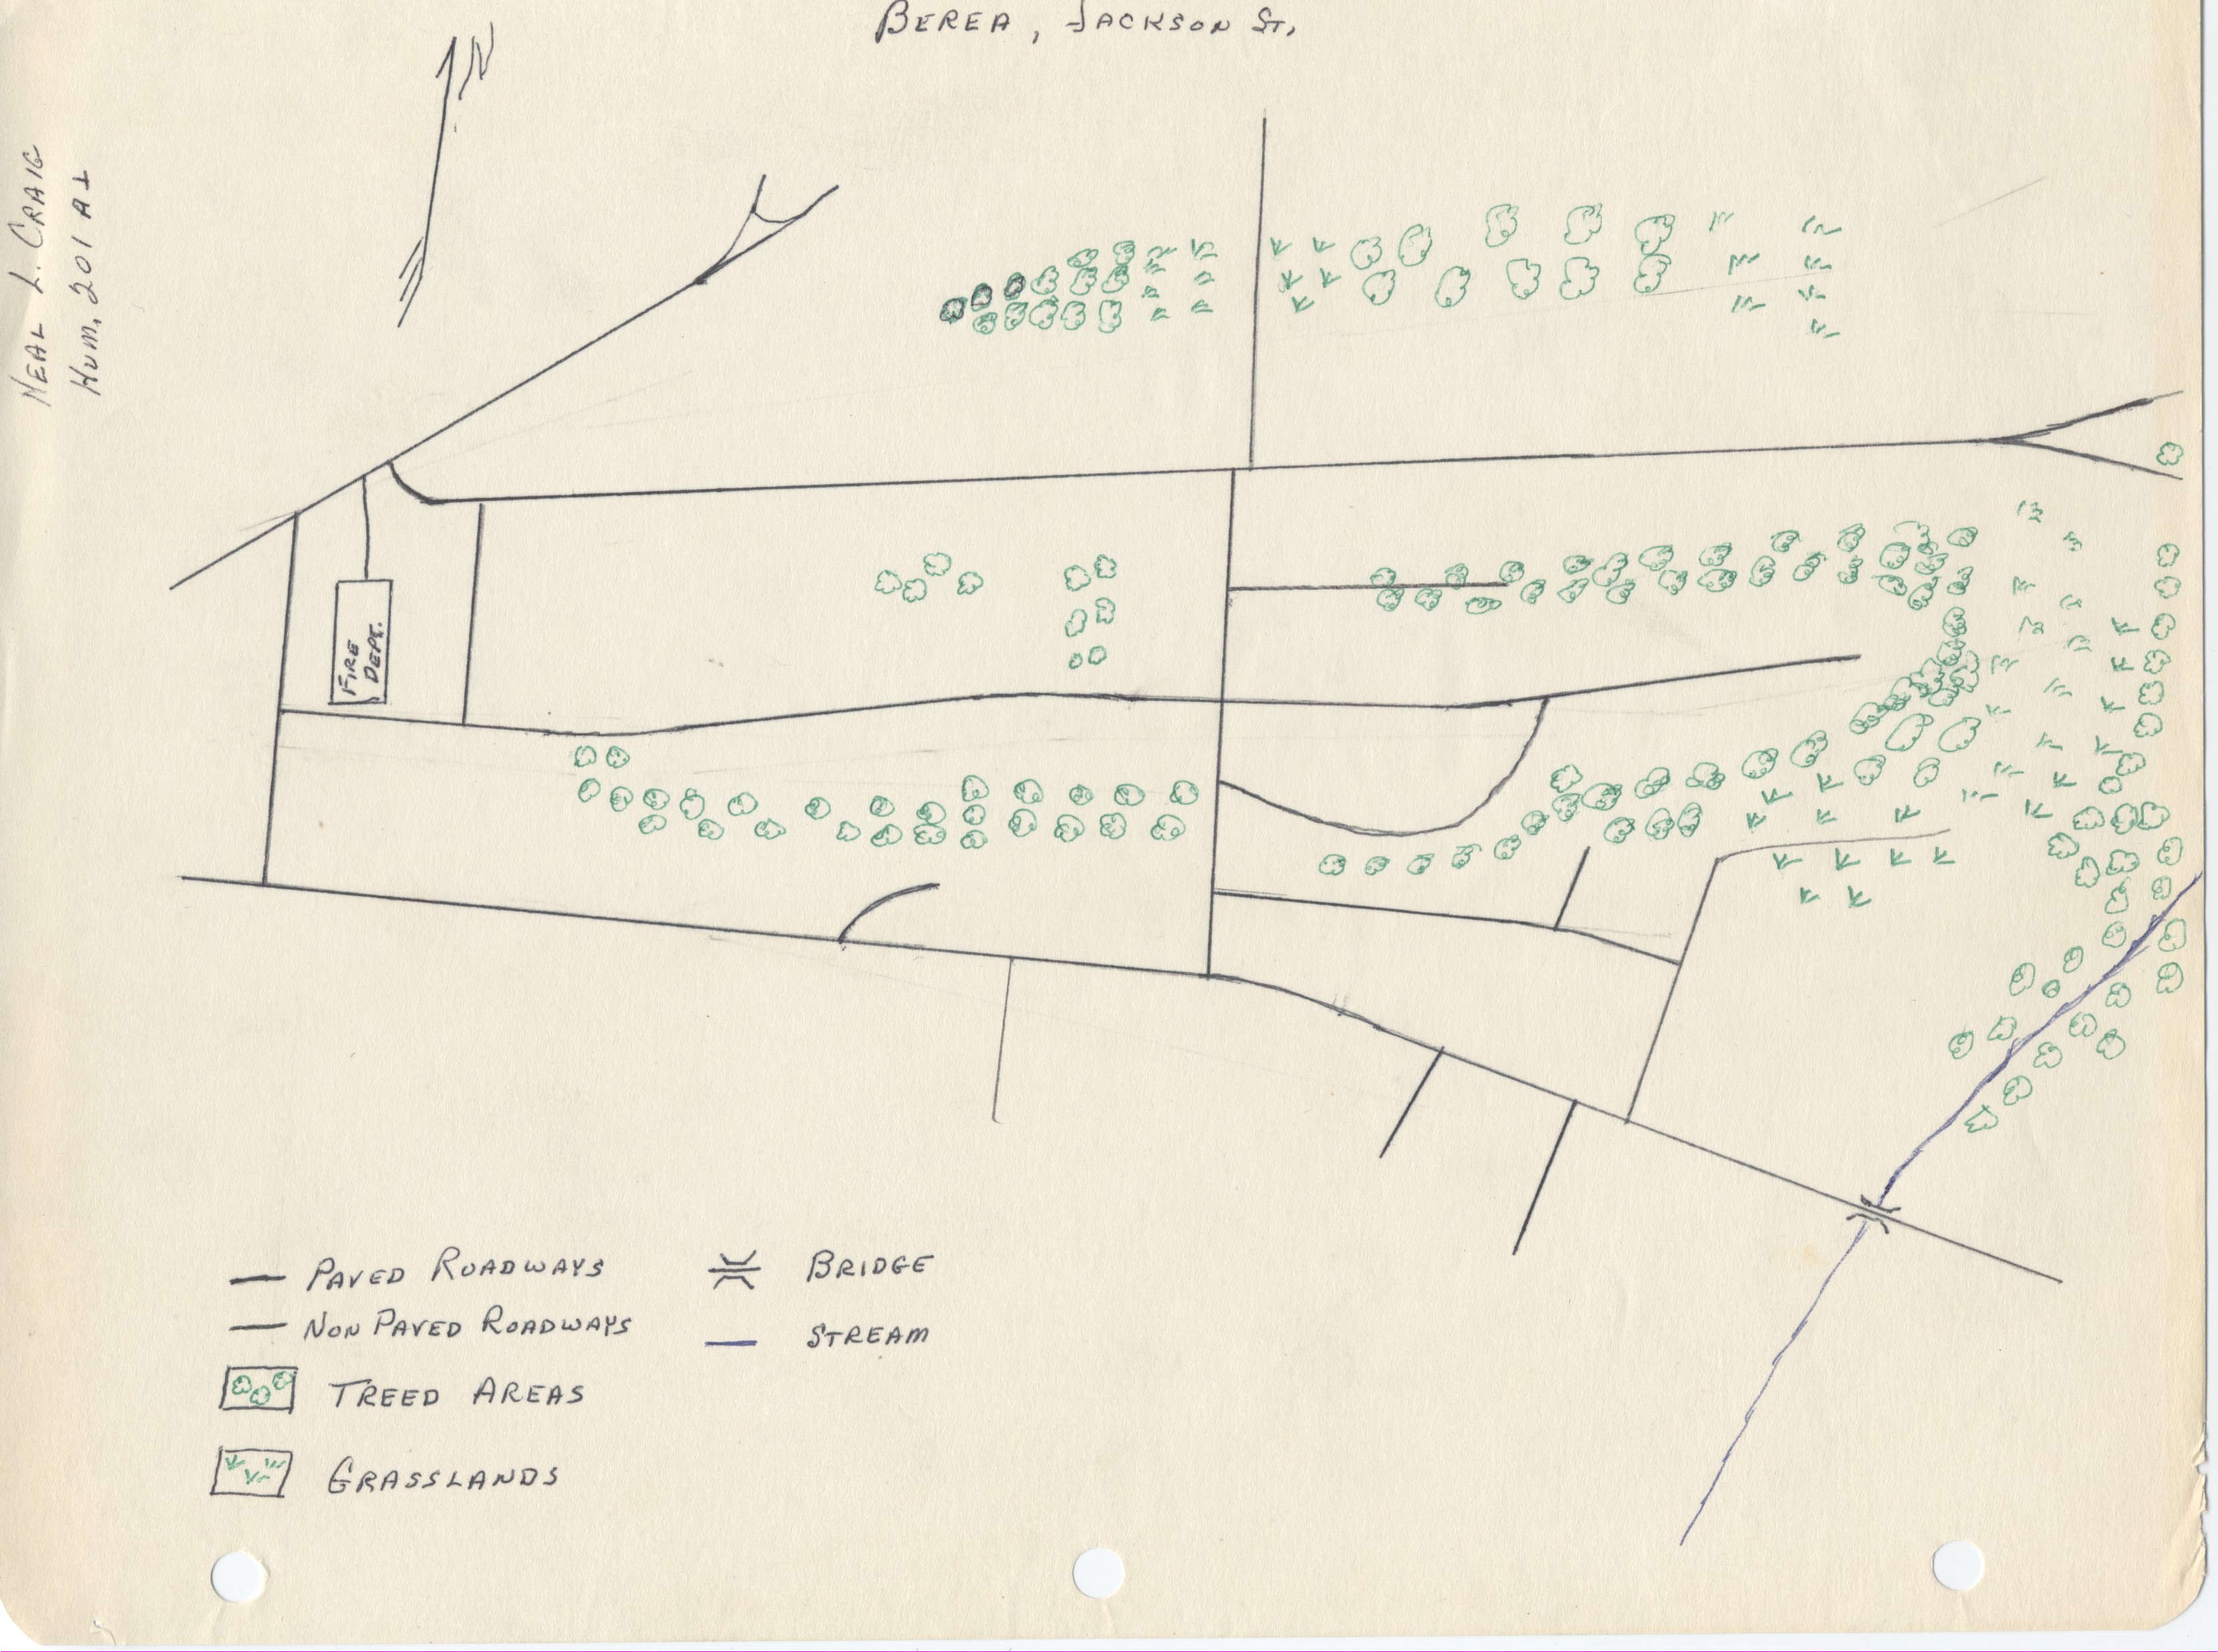 BEREA, JACKSON ST,
N
NEAL L. CRAIG
HUM, 201 A1
FIRE
DEPT.
PAVED ROADWAYS
NON PAVED ROADWAYS
TREED AREAS
GRASSLANDS
BRIDGE
STREAM